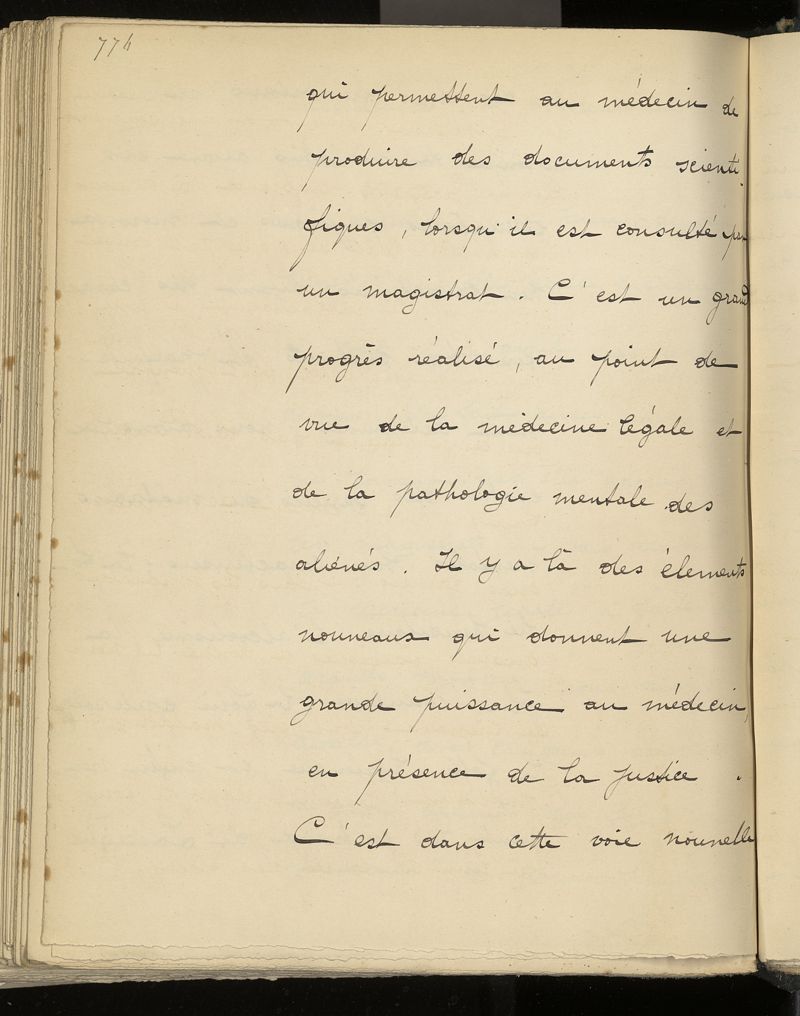 774
qui permettent au médecin de
produire des documents scienti
fiques, lorsqu'il est consulté par
un magistrat. C'est un grand
progrès réalisé, au point de
vue de la médecine légale et
de la pathologie mentale des
aliénés. Il y a là des élements
nouveaux qui donnent une
grande puissance au médecin,
en présence de la justice.
C'est dans cette voie nouvelle